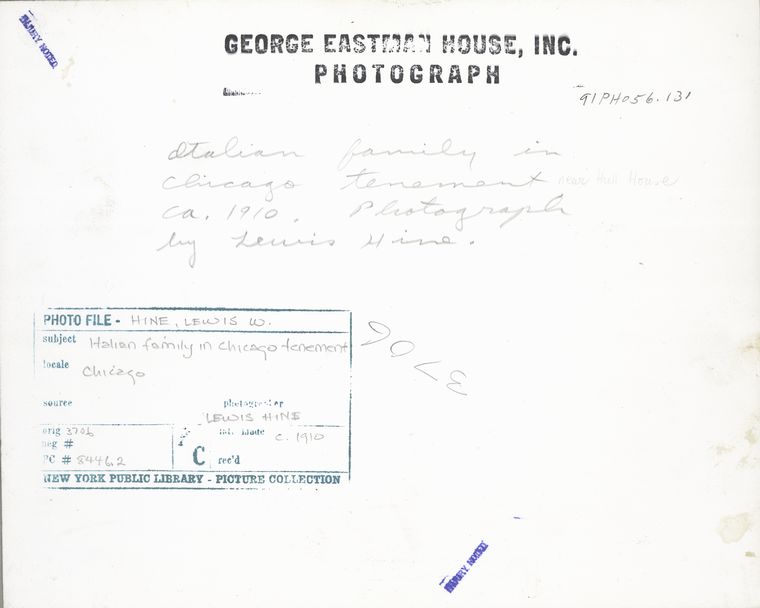 INJURY NOTED
GEORGE EASTMAN HOUSE, INC.
PHOTOGRAPH
91PH056.131
Italian family in
Chicago tenement near Hull House
ca. 1910. Photograph
by Lewis Hine.
PHOTO FILE - HINE, LEWIS W.
subject Italian family in Chicago tenement
locale Chicago
source photographer
LEWIS HINE
orig 3706
neg #
PC # 8446.2
C
c. 1910
rec'd
NEW YORK PUBLIC LIBRARY - PICTURE COLLECTION
3706
INJURY NOTED